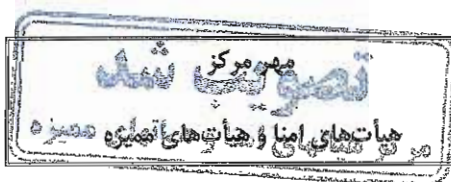 مهر مرکز
تصویب شد
هیأت‌های امنا و هیأت‌های ممیزه